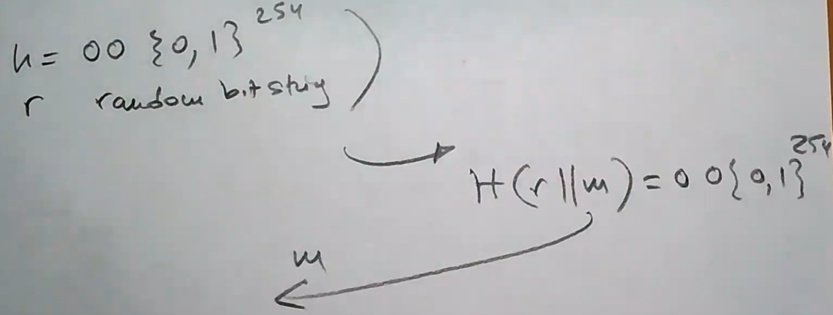 h = 00 {0,1}^254
r random bitstring
H(r||m) = 00{0,1}^254
m